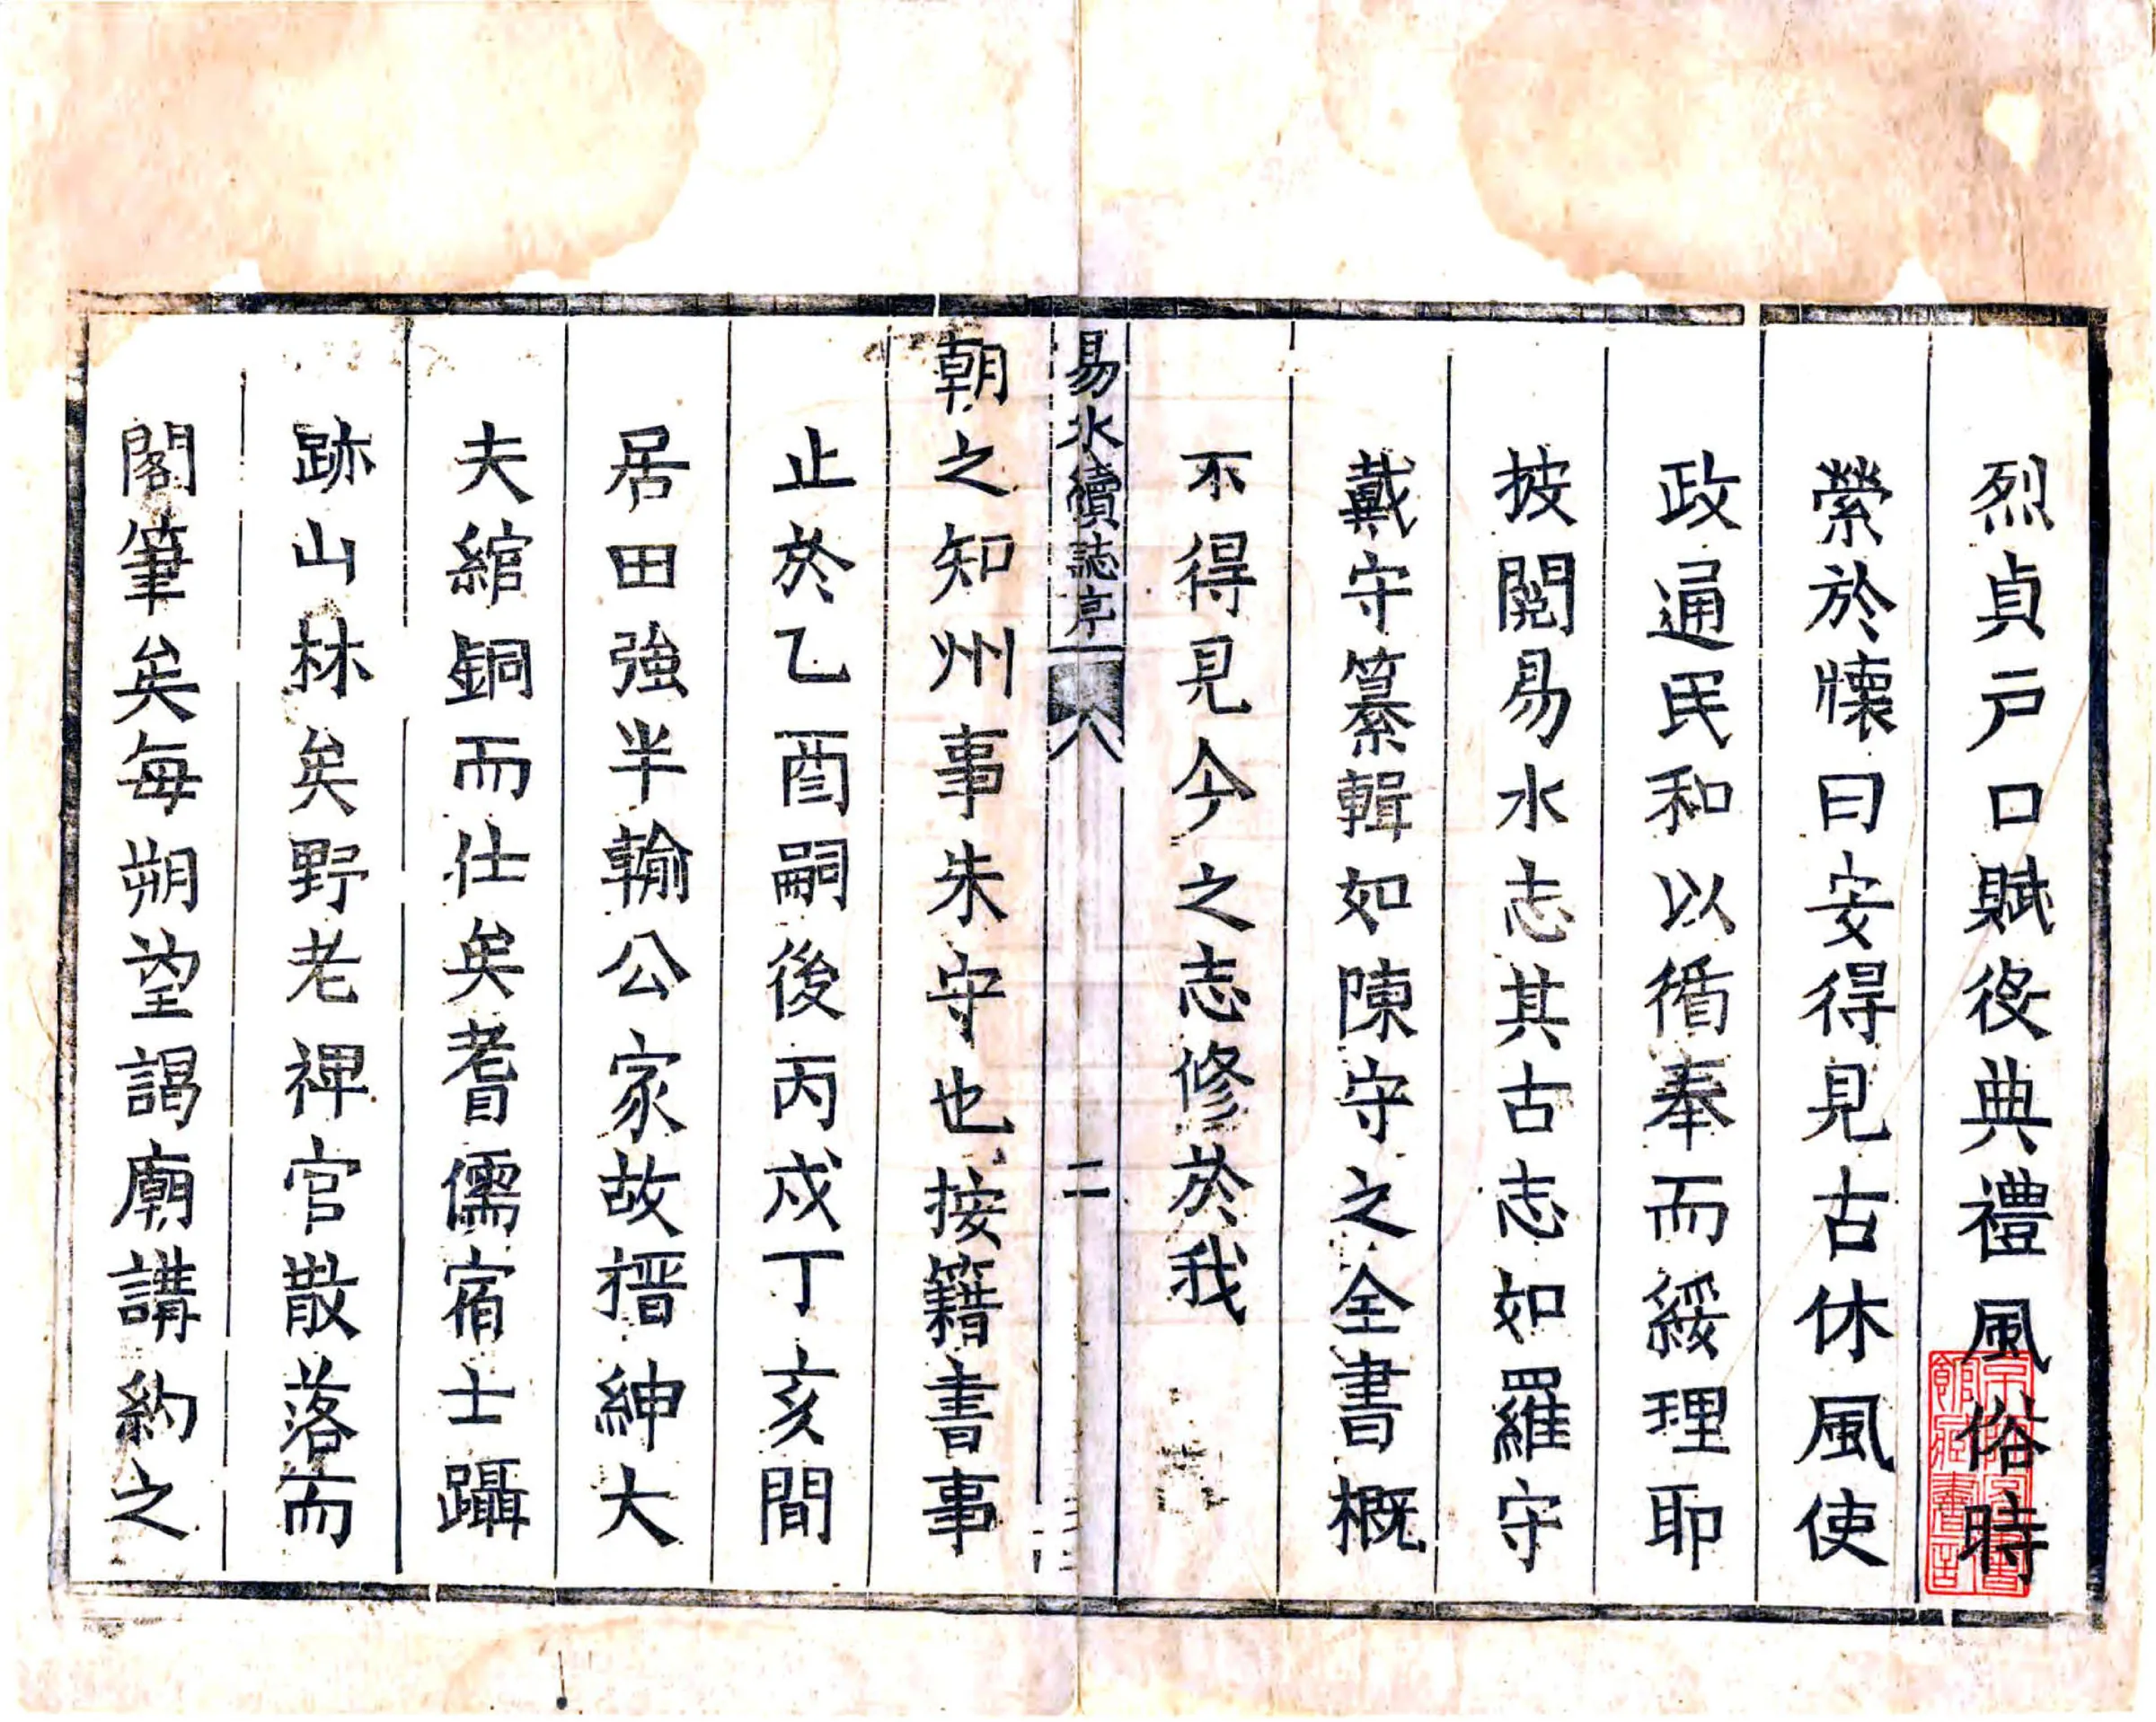 烈貞戶口賦役典禮風俗時
縈於懷曰安得見古休風使
政通民和以循奉而綏理耶
披閱易水志其古志如羅守
戴守纂輯如陳守之全書概
不得見今之志修於我
易水續誌序
二
朝之知州事朱守也按籍書事
止於乙酉嗣後丙戍丁亥間
居田強半輸公家故搢紳大
夫綰銅而仕矣耆儒宿士躡
跡山林矣野老裨官散落而
閣筆矣每朔望謁廟講約之